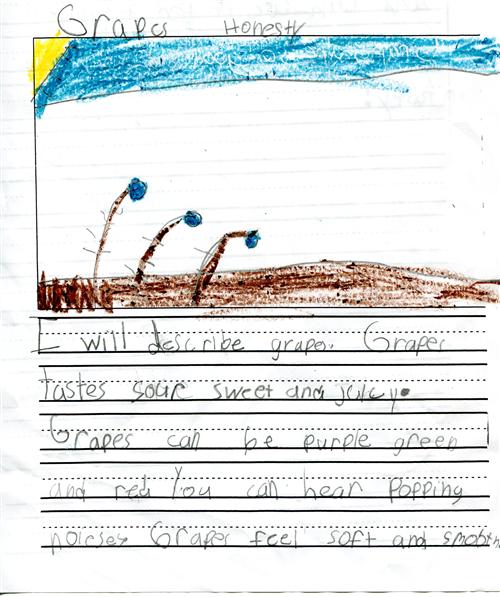 Grapes Honesty
I will describe grapes. Grapes
tastes sour sweet and juicy.
Grapes can be purple green
and red You can hear popping
noises. Grapes feel soft and smooth